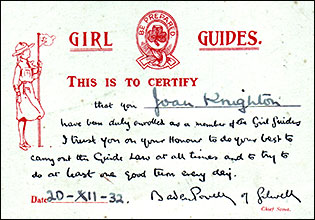 BE PREPARED
GIRL GUIDES.
THIS IS TO CERTIFY
that you Joan Knighton
have been duly enrolled as a member of the Girl Guides
I trust you on your Honour to do your best to
carry out the Guide Law at all times and to try to
do at least one good turn every day.
Date 20-XII-32. Baden Powell of Gilwell
Chief Scout.